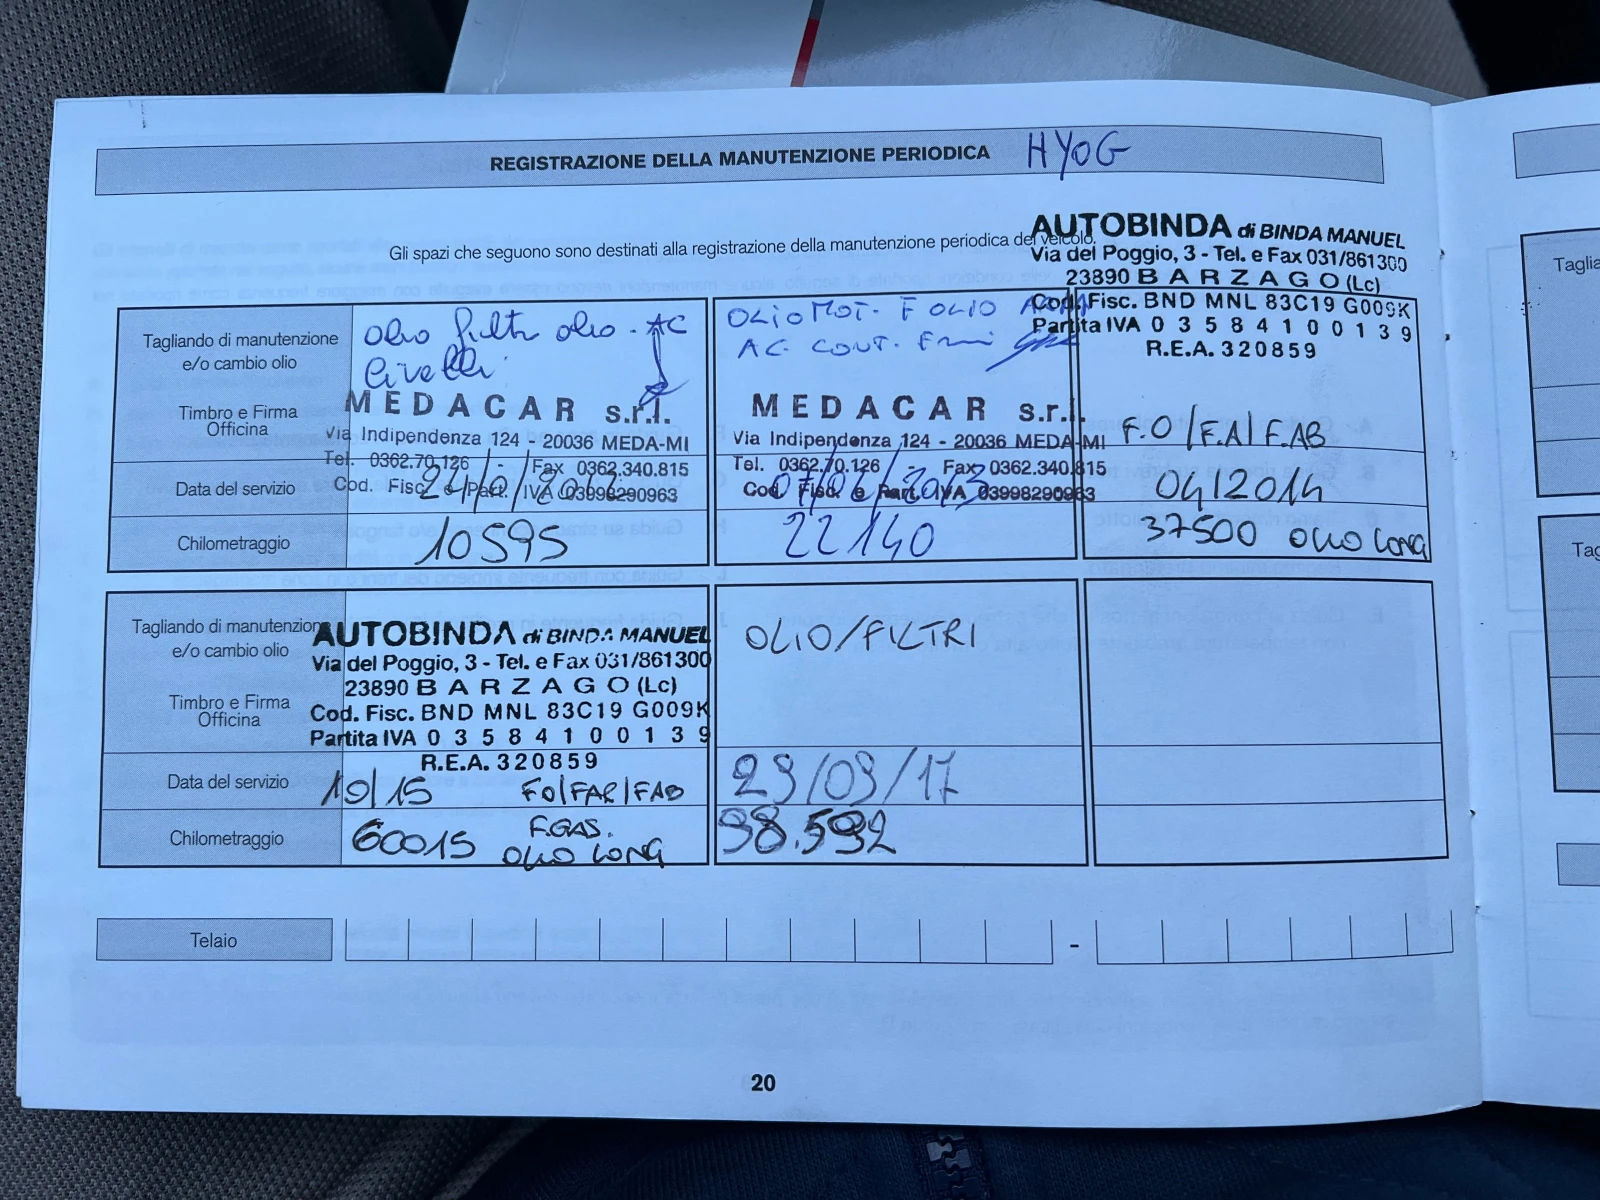 REGISTRAZIONE DELLA MANUTENZIONE PERIODICA HYOG
Gli spazi che seguono sono destinati alla registrazione della manutenzione periodica del veicolo.
Tagliando di manutenzione
e/o cambio olio
Timbro e Firma
Officina
Data del servizio
Chilometraggio
olio filtri olio - AC
livelli
MEDACAR s.r.l.
Via Indipendenza 124 - 20036 MEDA-MI
Tel. 0362.70.126 - Fax 0362.340.815
Cod. Fisc. e Part. IVA 03998290963
10595
OLIO MOT. F OLIO
AC. CONT.
MEDACAR s.r.l.
Via Indipendenza 124 - 20036 MEDA-MI
Tel. 0362.70.126 - Fax 0362.340.815
Cod. Fisc. e Part. IVA 03998290963
22140
AUTOBINDA di BINDA MANUEL
Via del Poggio, 3 - Tel. e Fax 031/861300
23890 BARZAGO (Lc)
Cod. Fisc. BND MNL 83C19 G009K
Partita IVA 03584100139
R.E.A. 320859
F.O/F.A/F.AB
04/2014
37500 OLIO LONG
Tagliando di manutenzione
e/o cambio olio
Timbro e Firma
Officina
Data del servizio
Chilometraggio
AUTOBINDA di BINDA MANUEL
Via del Poggio, 3 - Tel. e Fax 031/861300
23890 BARZAGO (Lc)
Cod. Fisc. BND MNL 83C19 G009K
Partita IVA 03584100139
R.E.A. 320859
10/15 FO/FAR/FAB
60015 F.GAS.
OLIO LONG
OLIO/FILTRI
29/09/17
98.592
Telaio -
20
Taglia
Tag